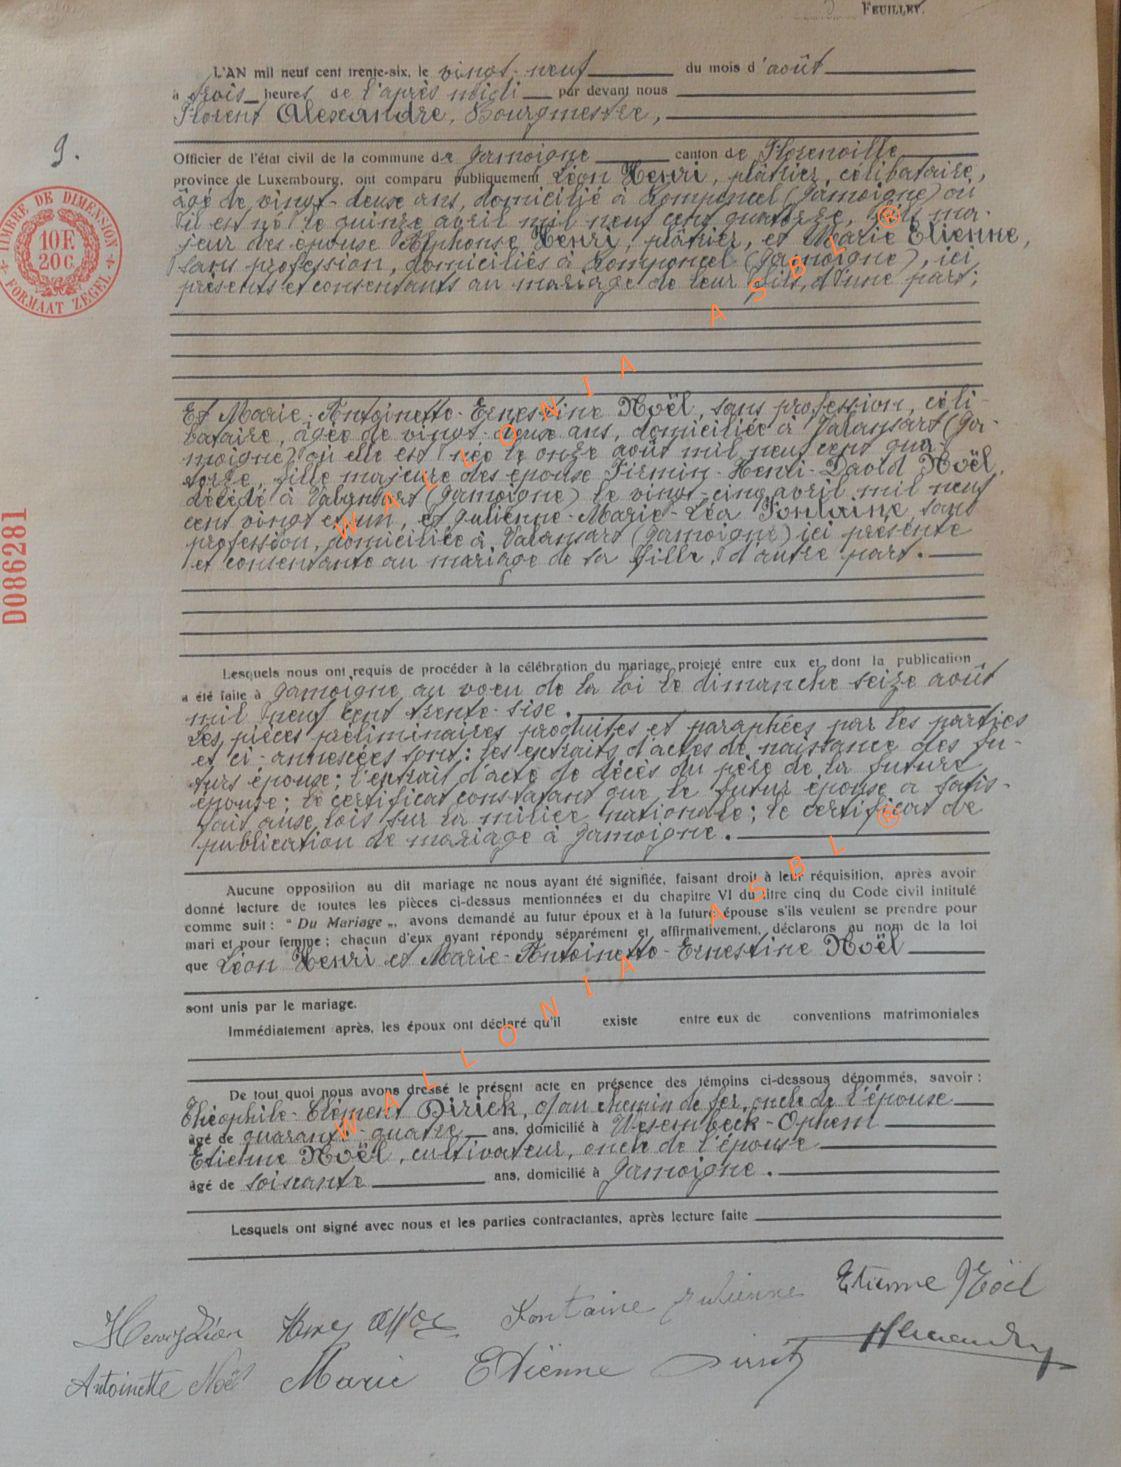 FEUILLET.
L'AN mil neuf cent trente-six, le vingt-neuf du mois d'août
à trois heures de l'après midi par devant nous
Florent Alexandre, Bourgmestre,
9.
Officier de l'état civil de la commune de Jamoigne canton de Florenville
province de Luxembourg, ont comparu publiquement Léon Henri, plâtrier, célibataire,
âgé de vingt-deux ans, domicilié à Romponcel (Jamoigne) où
il est né le quinze avril mil neuf cent quatorze, fils ma-
jeur des époux Alphonse Henri, plâtrier, et Marie Etienne,
sans profession, domiciliés à Romponcel (Jamoigne), ici
présents et consentants au mariage de leur fils, d'une part;
TIMBRE DE DIMENSION
10 F.
20 C.
FORMAAT ZEGEL
Et Marie-Antoinette-Ernestine Noël, sans profession, céli-
bataire, âgée de vingt-deux ans, domiciliée à Valansart (Ja-
moigne) où elle est née le onze août mil neuf cent qua-
torze, fille majeure des époux Firmin-Henri-David Noël,
décédé à Valansart (Jamoigne) le vingt-cinq avril mil neuf
cent vingt et un, et Julienne-Marie-Léa Fontaine, sans
profession, domiciliée à Valansart (Jamoigne) ici présente
et consentante au mariage de sa fille, d'autre part.
D086281
Lesquels nous ont requis de procéder à la célébration du mariage projeté entre eux et dont la publication
a été faite à Jamoigne au voeu de la loi le dimanche seize août
mil neuf cent trente-six.
Les pièces préliminaires produites et paraphées par les parties
et ci-annexées sont: les extraits d'actes de naissance des fu-
turs époux; l'extrait d'acte de décès du père de la future
épouse; le certificat constatant que le futur époux a satis-
fait aux lois sur la milice nationale; le certificat de
publication de mariage à Jamoigne.
Aucune opposition au dit mariage ne nous ayant été signifiée, faisant droit à leur réquisition, après avoir
donné lecture de toutes les pièces ci-dessus mentionnées et du chapitre VI du titre cinq du Code civil intitulé
comme suit: “ Du Mariage „, avons demandé au futur époux et à la future épouse s'ils veulent se prendre pour
mari et pour femme; chacun d'eux ayant répondu séparément et affirmativement, déclarons au nom de la loi
que Léon Henri et Marie-Antoinette-Ernestine Noël
sont unis par le mariage.
Immédiatement après, les époux ont déclaré qu'il existe entre eux de conventions matrimoniales
De tout quoi nous avons dressé le présent acte en présence des témoins ci-dessous dénommés, savoir:
Théophile-Clément Dirick, au chemin de fer, oncle de l'épouse
âgé de quarante-quatre ans, domicilié à Wesembeek-Ophem
Etienne Noël, cultivateur, oncle de l'épouse
âgé de soixante ans, domicilié à Jamoigne.
Lesquels ont signé avec nous et les parties contractantes, après lecture faite
Henry Léon Fontaine Julienne Etienne Noël
Antoinette Noël Marie Etiënne
WALLONIA ASBL ®
WALLONIA ASBL ®